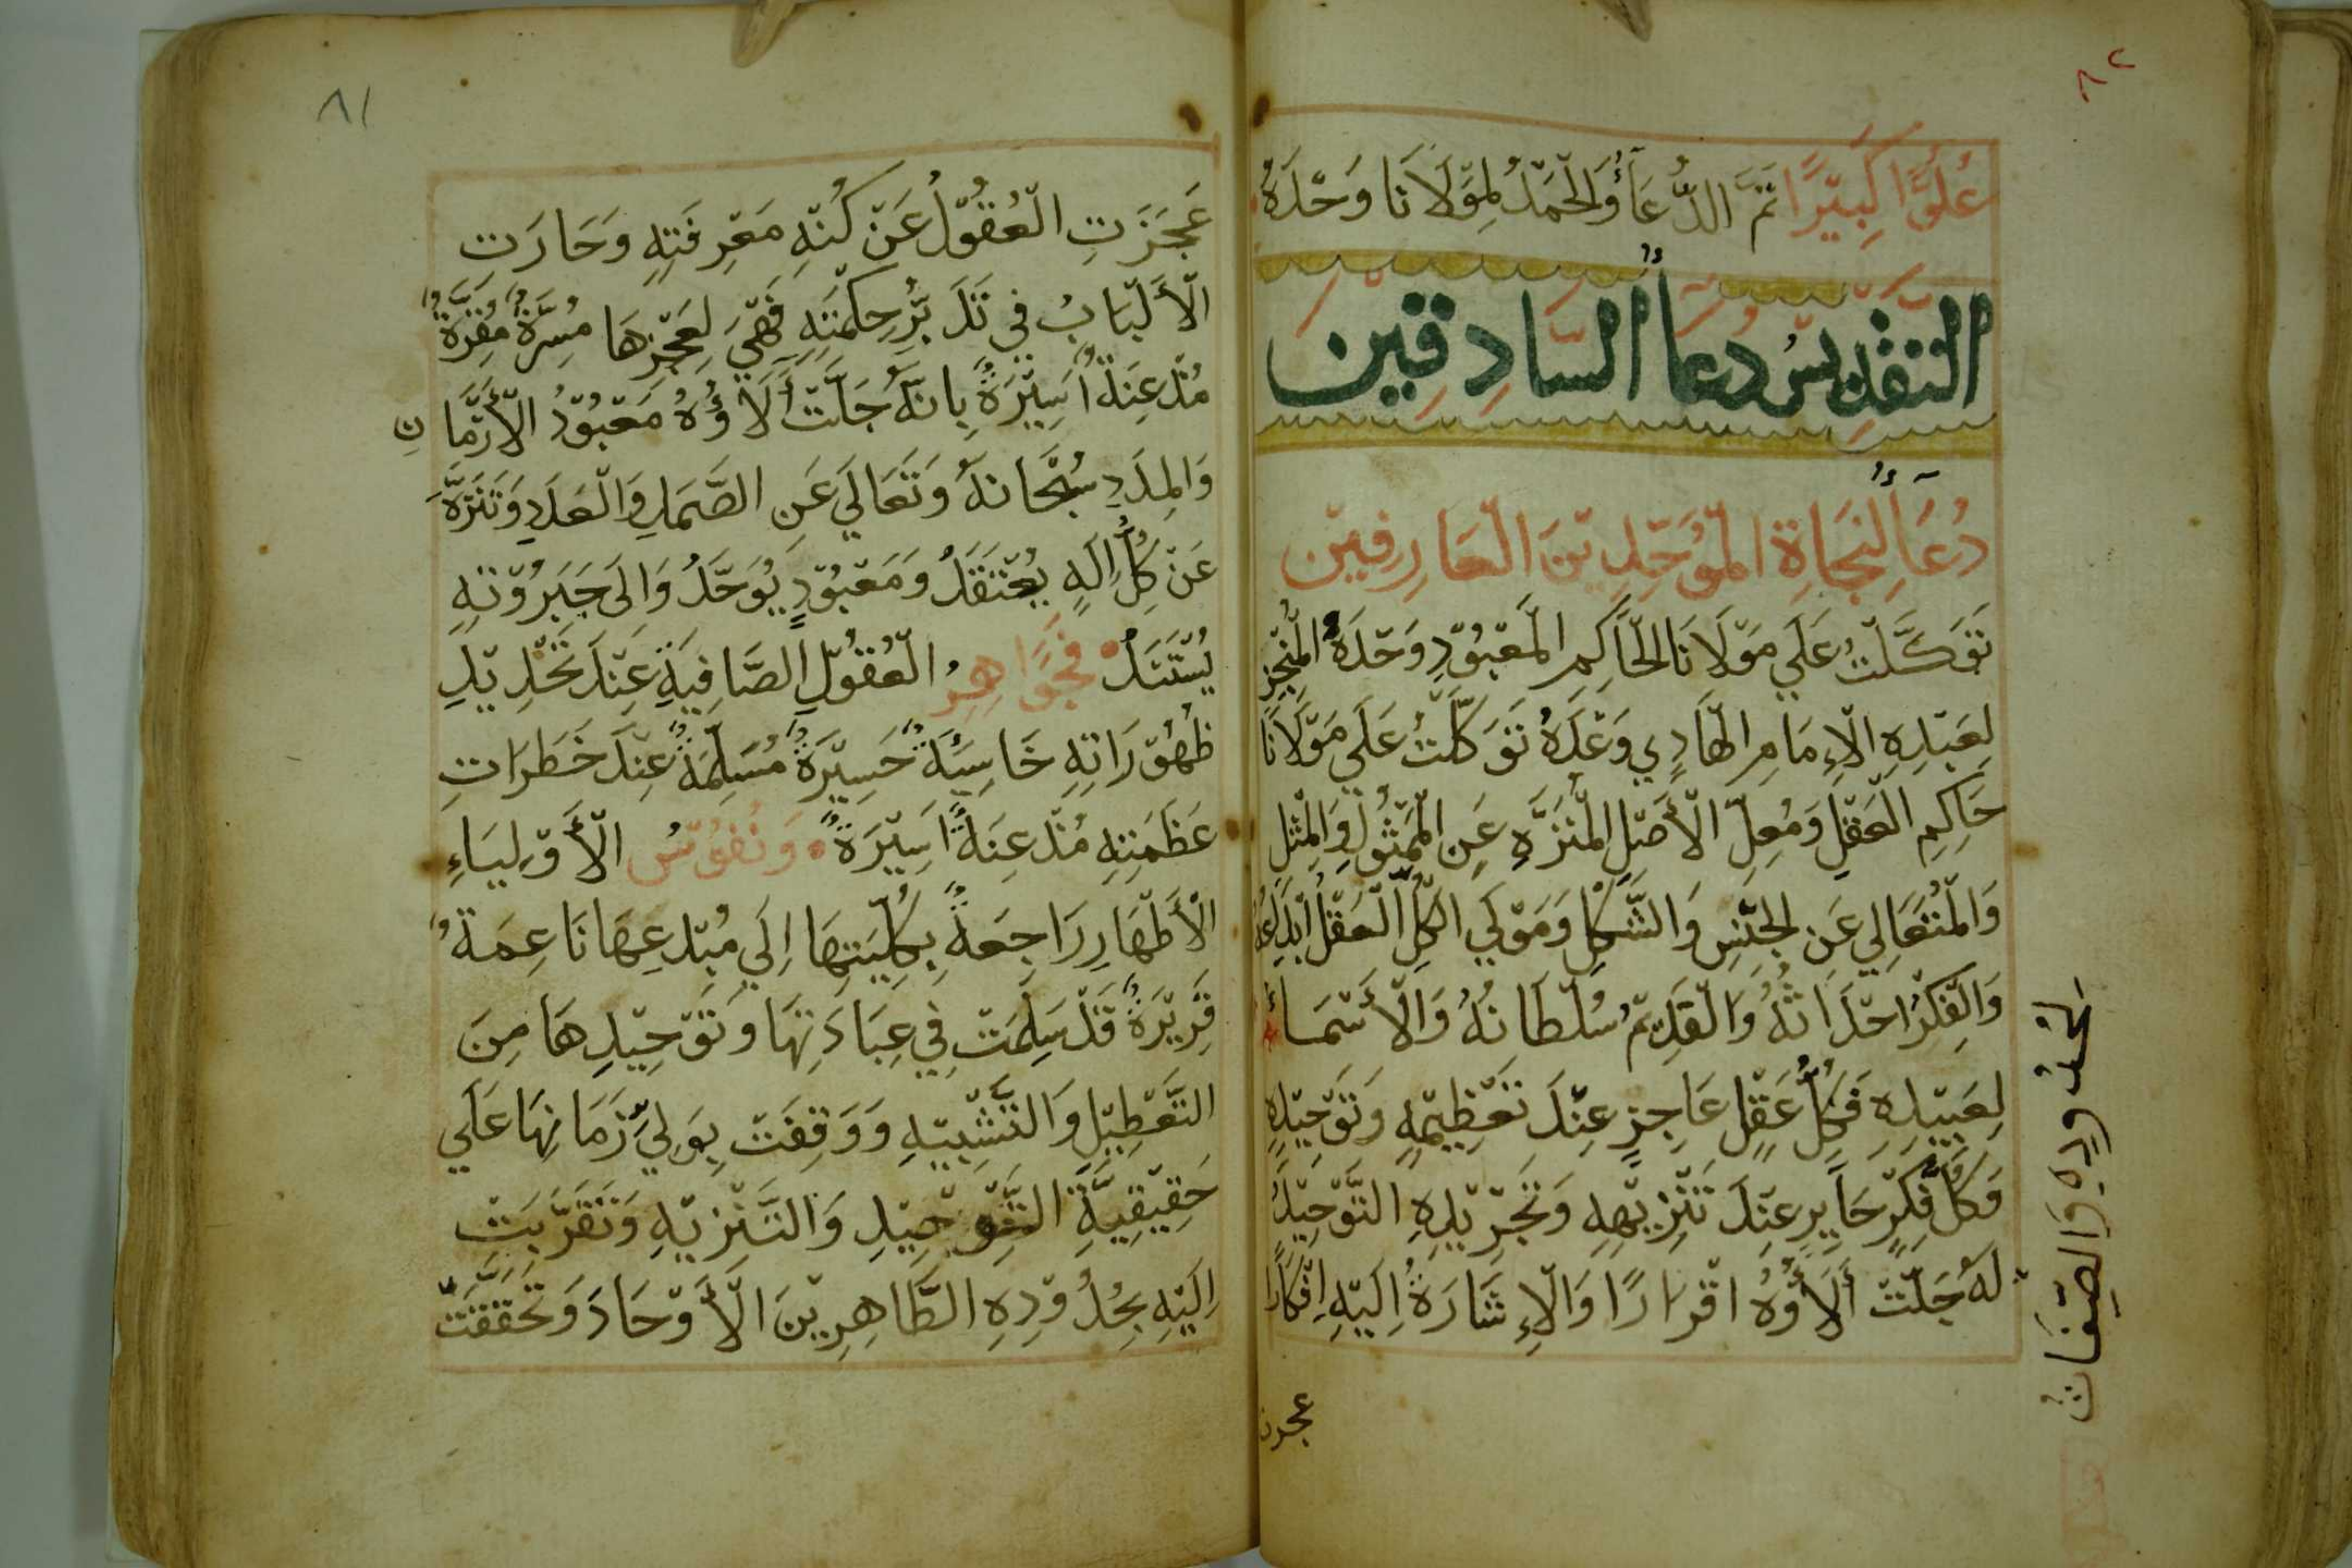 ٨٢
عُلُوًّا كَبِيْرًا تَمَّ الدُّعَآءُ وَالْحَمْدُ لِمَوْلَانَا وَحْدَهُ
التقديس دعآءُ السَّادِقِيْن
دُعَآءُ لِنَجَاةِ الْمُوَحِّدِيْنَ الْعَارِفِيْن
تَوَكَّلْتُ عَلَي مَوْلَانَا الْحَاكِمِ الْمَعْبُوْدِ وَحْدَهُ الْمُنْجِزِ
لِعَبْدِهِ الْإِمَامِ الْهَادِي وَعْدَهُ تَوَكَّلْتُ عَلَي مَوْلَانَا
حَاكِمِ الْعَقْلِ وَمُعِلِّ الْأَصْلِ الْمُنَزَّهِ عَنِ الْمَمْثُوْلِ وَالْمِثْلِ
وَالْمُتَعَالِي عَنِ الْجِنْسِ وَالشَّكْلِ وَمَوْلَي الْكُلِّ الْعَقْلُ اَبْدَاعُهُ
وَالْفِكْرُ احْدَاثُهُ وَالْقِدَمُ سُلْطَانُهُ وَالْأَسْمَاءُ
لِعَبِيْدِهِ فَكُلُّ عَقْلٍ عَاجِزٍ عِنْدَ تَعْظِيْمِهِ وَتَوْحِيْدِهِ
وَكُلُّ فِكْرٍ حَايِرٍ عِنْدَ تَنْزِيْهِهِ وَتَجْرِيْدِهِ التَّوْحِيْدُ
لَهُ جَلَّتْ أَلَاؤُهُ اقْرَارًا وَالْإِشَارَةُ اِلَيْهِ اِفْكَارًا
لحدوده والصفات
عجزت
٨١
عَجَزَتِ الْعُقُوْلُ عَنْ كُنْهِ مَعْرِفَتِهِ وَحَارَتِ
الْأَلْبَابُ فِي تَدَبُّرِ حِكْمَتِهِ فَهْيَ لِعَجْزِهَا مُسِرَّةٌ مُقِرَّةٌ
مُذْعِنَةٌ اَسِيْرَةٌ بِانَّهُ جَلَّتْ أَلَاؤُهُ مَعْبُوْدُ الْأَزْمَانِ
وَالْمِدَدِ سُبْحَانَهُ وَتَعَالَي عَنِ الصَّمَدِ وَالْعَدَدِ وَتَنَزَّهَ
عَنْ كُلِّ اِلَهٍ يُعْتَقَدُ وَمَعْبُوْدٍ يُوَحَّدُ وَاِلَى جَبَرُوْتِهِ
يُسْتَنَدُ فَجَوَاهِرُ الْعُقُوْلِ الصَّافِيَةِ عِنْدَ تَحْدِيْدِ
ظُهُوْرَاتِهِ خَاسِئَةٌ حَسِيْرَةٌ مُسَلِّمَةٌ عِنْدَ خَطَرَاتِ
عَظَمَتِهِ مُذْعِنَةٌ اَسِيْرَةٌ وَنُفُوْسُ الْأَوْلِيَاءِ
الْأَطْهَارِ رَاجِعَةٌ بِكُلِّيَتِهَا اِلَي مُبْدِعِهَا نَاعِمَةٌ
قَرِيْرَةٌ قَدْ سَلِمَتْ فِي عِبَادَتِهَا وَتَوْحِيْدِهَا مِنَ
التَّعْطِيْلِ وَالتَّشْبِيْهِ وَوَقِفَتْ بِوَلِيِّ زَمَانِهَا عَلَي
حَقِيْقِيَّةِ التَّوْحِيْدِ وَالتَّنْزِيْهِ وَتَقَرَّبَتْ
اِلَيْهِ بِحُدُوْدِهِ الطَّاهِرِيْنَ الْأَوْحَادَ وَتَحَقَّقَتْ